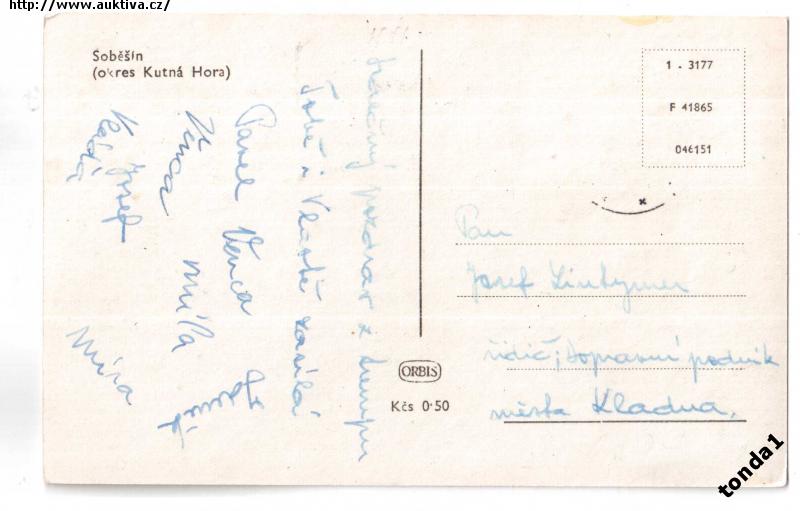 http://www.auktiva.cz/
Soběšín
(okres Kutná Hora)
Srdečný pozdrav z
Tobě i Vlastě zasílá
Pavel Venca
Věnca Míla
Láďa Josef
Míra
1 - 3177
F 41865
046151
ORBIS
Kčs 0·50
Pan
Josef
řidič, dopravní podnik
města Kladna,
tonda1